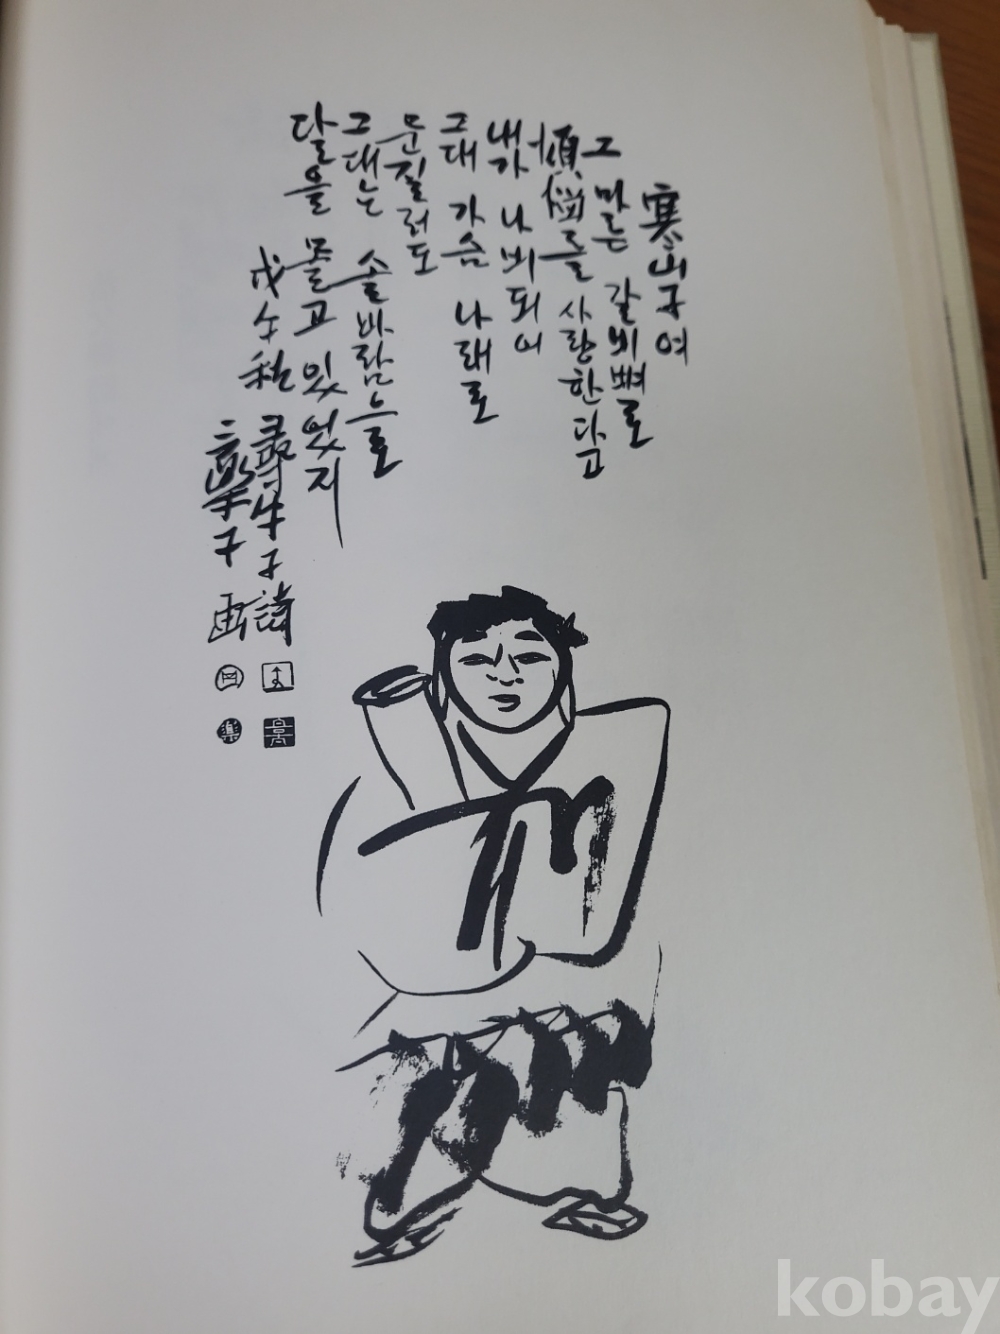 寒山子여
그 마른 갈비뼈로
煩惱를 사랑한다고
내가 나비되어
그대 가슴 나래로
문질러도
그대는 솔바람으로
달을 있었지
戊午秋 尋牛子 詩
kobay